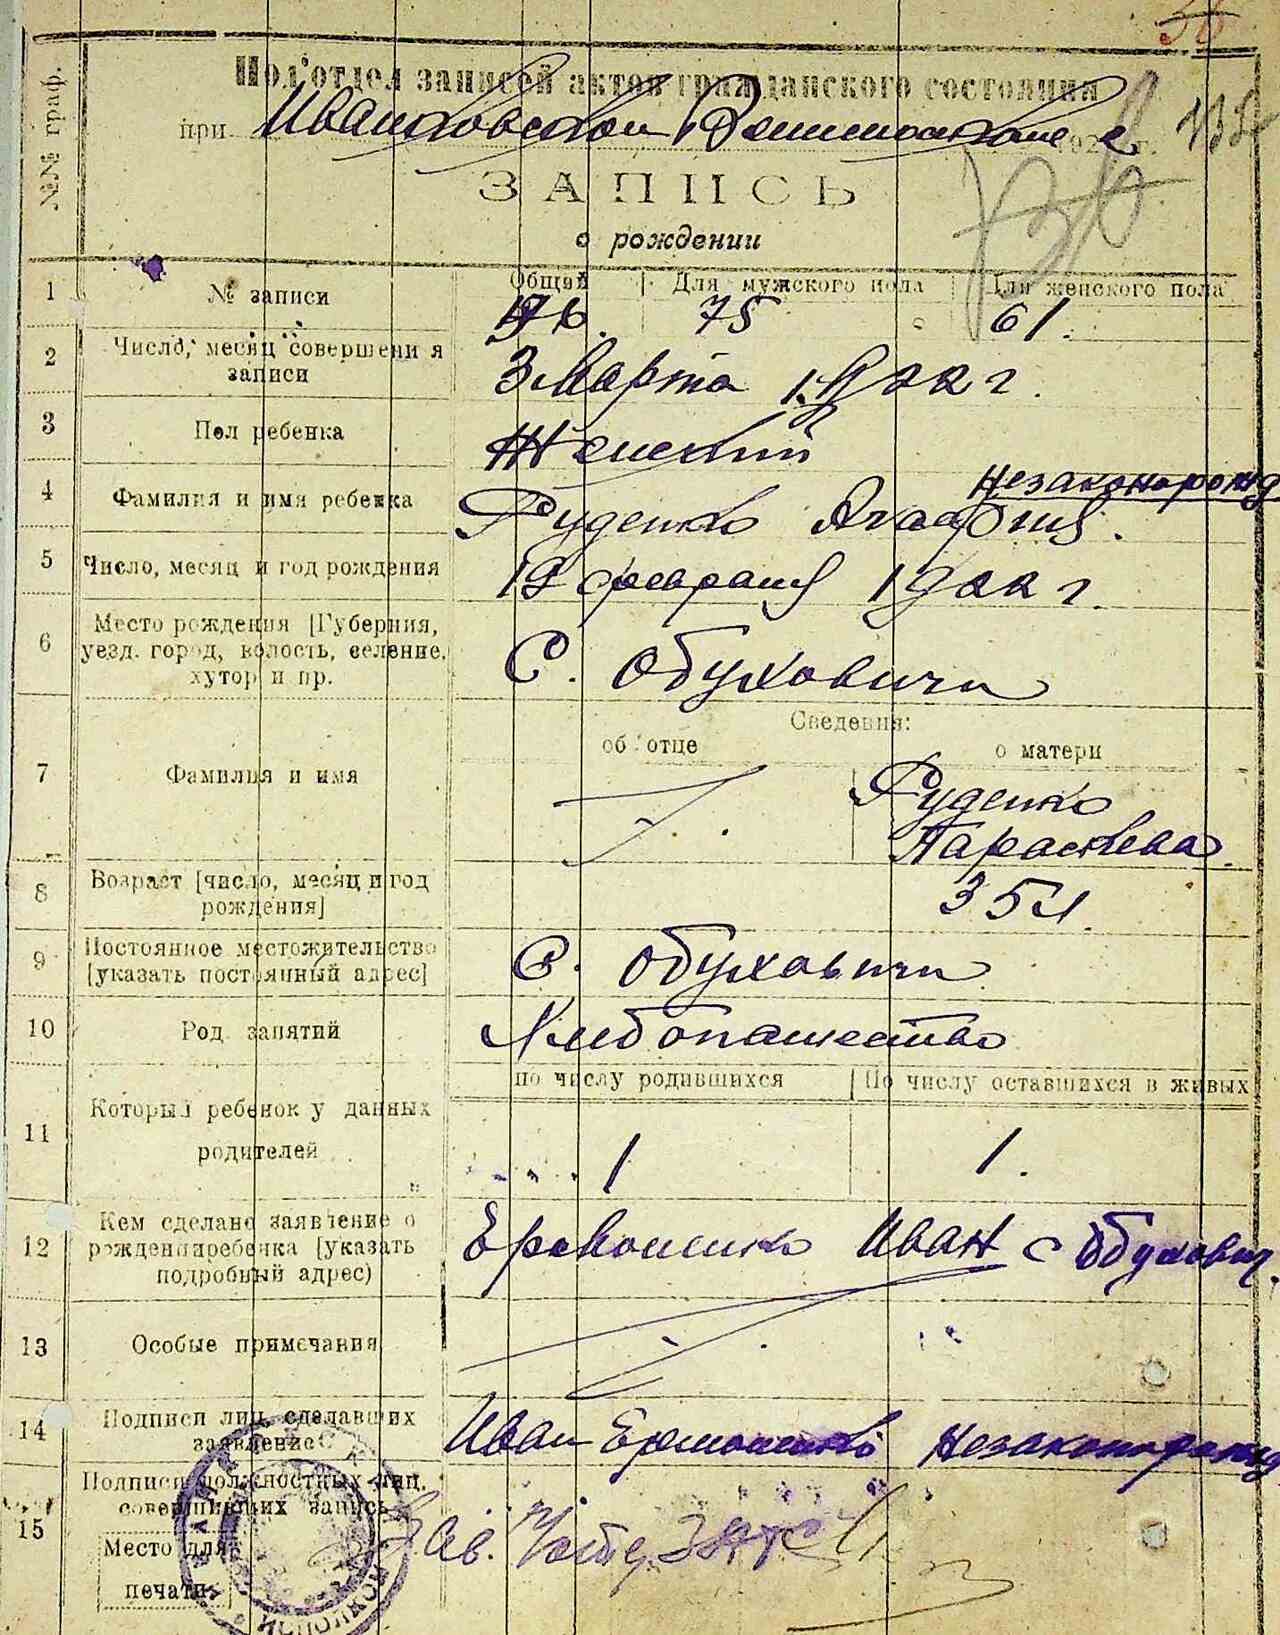 36
Подотдел записей актов гражданского состояния
при Иванковской 192 г.
№№ граф.
736
ЗАПИСЬ
о рождении
1 № записи Общий Для мужского пола Для женского пола
136. 75 61.
2 Число, месяц совершения записи 3 Марта 1922 г.
3 Пол ребенка Женский
незаконорожд
4 Фамилия и имя ребенка Руденко Агафия.
5 Число, месяц и год рождения 19 февраля 1922 г.
6 Место рождения [Губерния,
уезд. город, волость, селение,
хутор и пр. С. Обуховичи
Сведения:
об отце о матери
7 Фамилия и имя Руденко
Параскева.
8 Возраст [число, месяц и год
рождения] 35 л.
9 Постоянное местожительство
[указать постоянный адрес] С. Обуховичи
10 Род занятий Хлебопашество
по числу родившихся По числу оставшихся в живых
11 Который ребенок у данных
родителей 1 1.
12 Кем сделано заявление о
рождении ребенка [указать
подробный адрес) Иван с Обухович.
13 Особые примечания
14 Подписи лиц, сделавших
заявление Иван Ермошенко Незаконорожд
15 Подписи должностных лиц,
совершивших запись
Место для
печати
Зав. ЗАГС
ИСПОЛКОМ